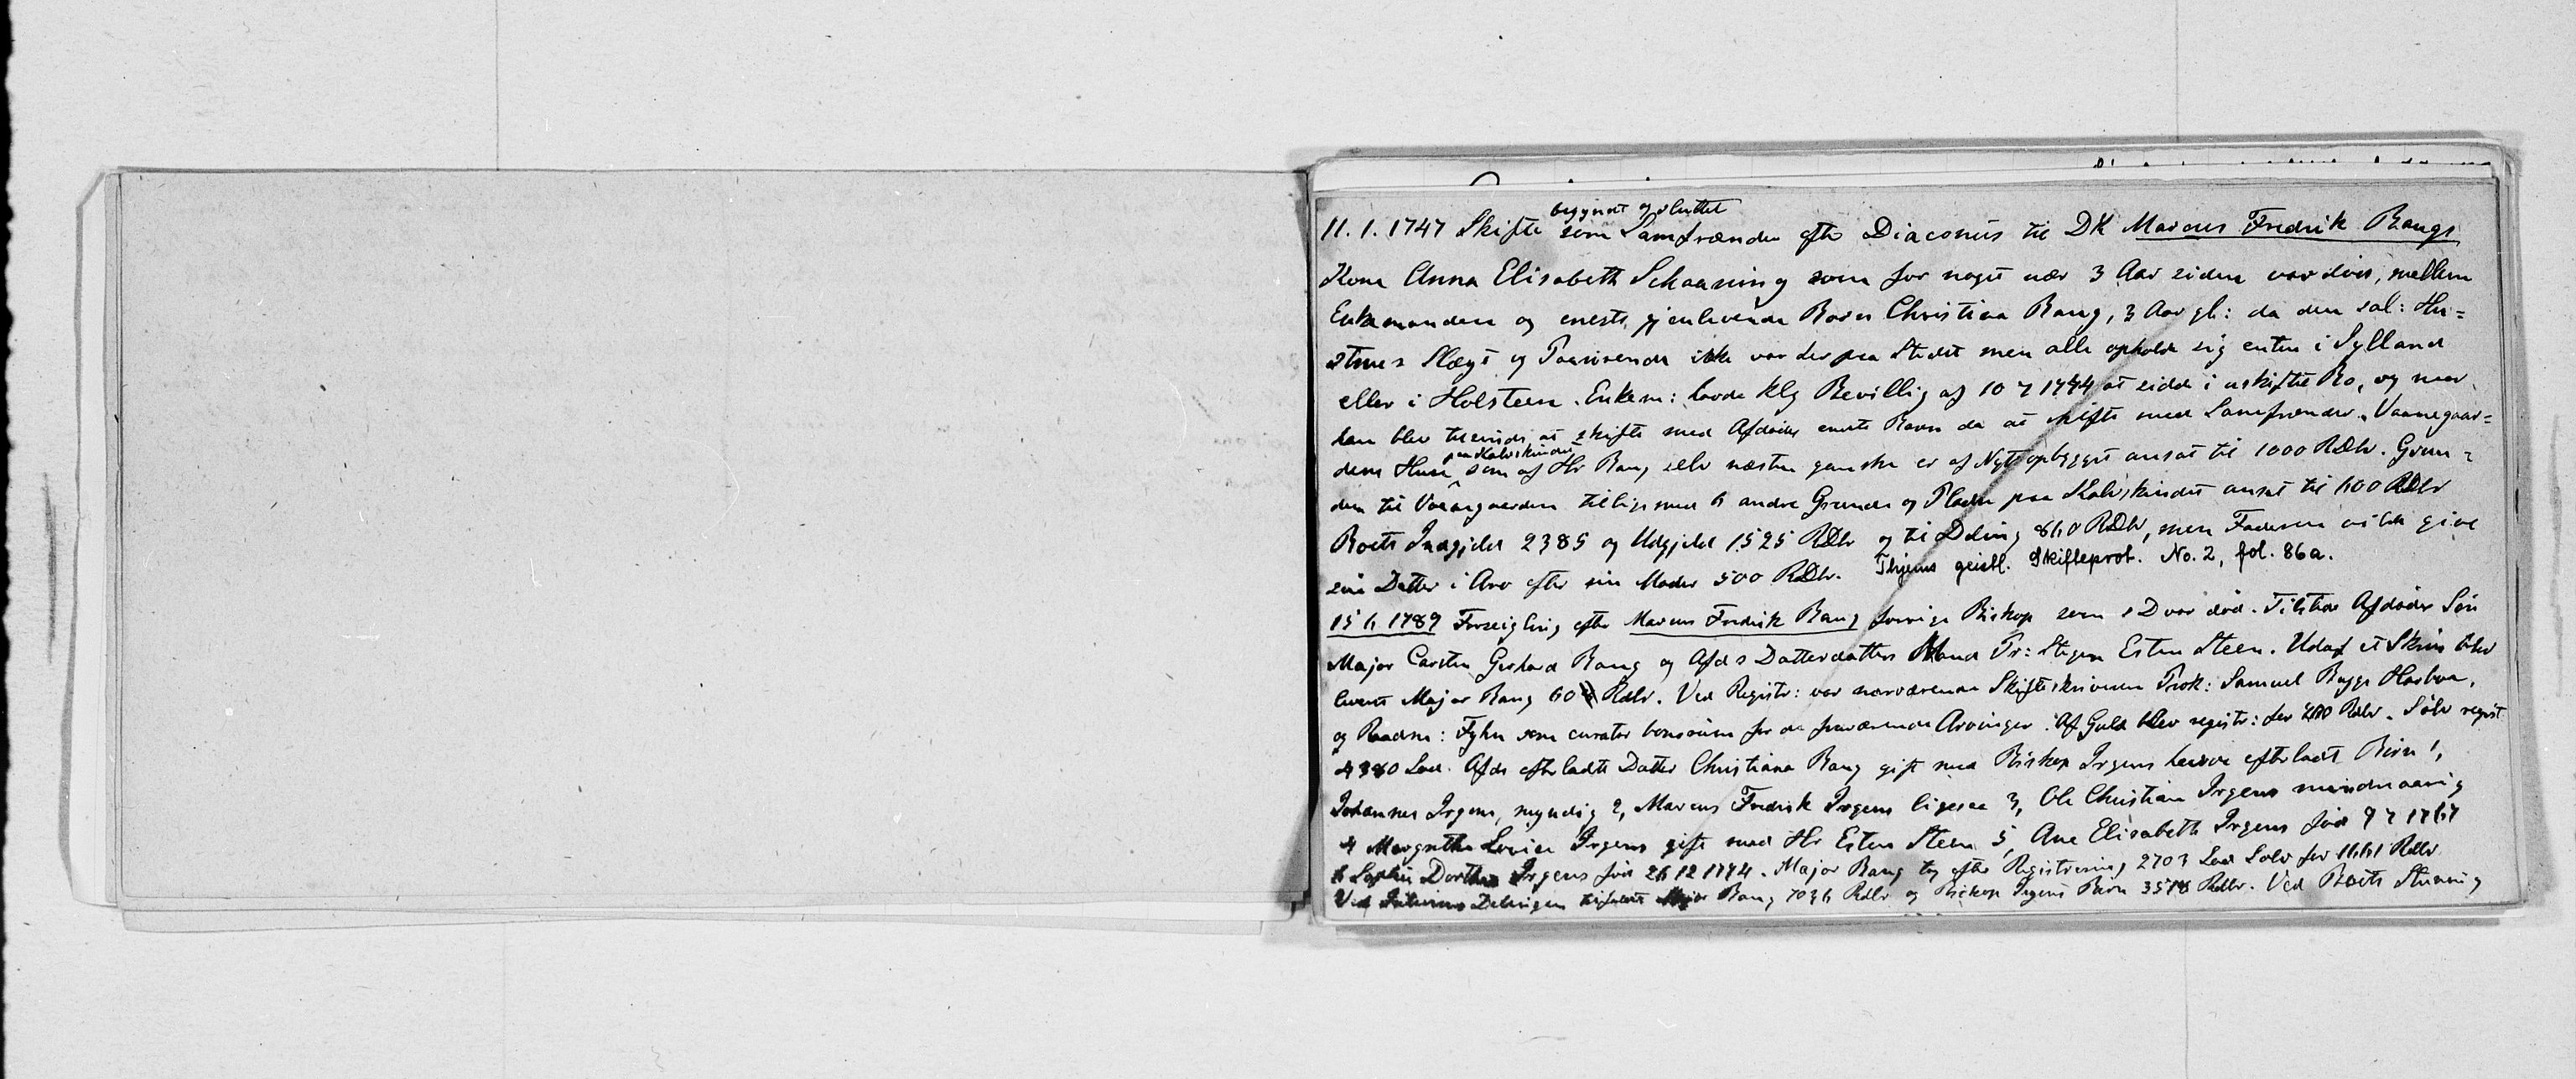 begyndt og sluttet
11.1.1747 Skifte som Samfrænder efter Diaconus til DK Marcus Fredrik Bangs
Kone Anna Elisabeth Schaaning som for noget nær 3 Aar siden var død, mellem
Enkemanden og eneste gjenlevende Barn Christina Bang, 3 Aar gl: da den sal: Hu=
strues Slægt og Paarørende ikke var her paa Stedet men alle opholde sig enten i Jylland
eller i Holsteen. Enkem: havde Klg Bevillig af 10 7 1744 at sidde i uskiftet Bo, og
han blev tilsinds at skifte med Afdødes eneste Barn da at skifte med Samfrænder. Vaanegaar=
paa Kalvskindet
dens Huse som af Hr Bang selv næsten ganske er af Nyt opbygget ansat til 1000 RDlr. Grun=
den til Vaanegaarden tillige med 6 andre Grunde og Pladse paa Kalvskindet ansat til 600 RDlr
Boets Indgjeld 2385 og Udgjeld 1525 RDlr og til Deling 860 RDlr, men Faderen vilde give
sin Datter i Arv efter sin Moder 500 RDlr. Thjems geistl. Skifteprot. No. 2, fol. 86a.
15 6 1789 Forseigling efter Marcus Fredrik Bang forrige Biskop som s D var død. Tilstede Afdødes Søn
Major Carsten Gerhard Bang og Afd s Datterdatters Mand Pr: Stegen Esten Steen. Udaf et Skrin blev
leveret Major Bang 604 Rdlr. Ved Registr: var nærværende Skifteskriveren Prok: Samuel Bugge Harboe,
og Raadm: Fyhn som curator bonorum for de fraværende Arvinger. Af Guld blev registr: for 200 Rdlr. Sølv regist
4380 Lod. Afds efterladte Datter Christiana Bang gift med Biskop Irgens havde efterladt Børn 1,
Johannes Irgens, myndig 2, Marcus Fredrik Irgens ligesaa 3, Ole Christian Irgens mindreaarig
4 Margrethe Lovise Irgens gift med Hr Esten Steen 5, Ane Elisabeth Irgens fød 9 7 1767
6 Sophie Dorthea Irgens fød 26 12 1774. Major Bang tog efter Registrering 2703 Lod Sølv for 1661 Rdlr
Ved Delingen tilfaldt Major Bang 7036 Rdlr og Biskop Irgens Børn 3518 Rdlr. Ved Boets Slutning